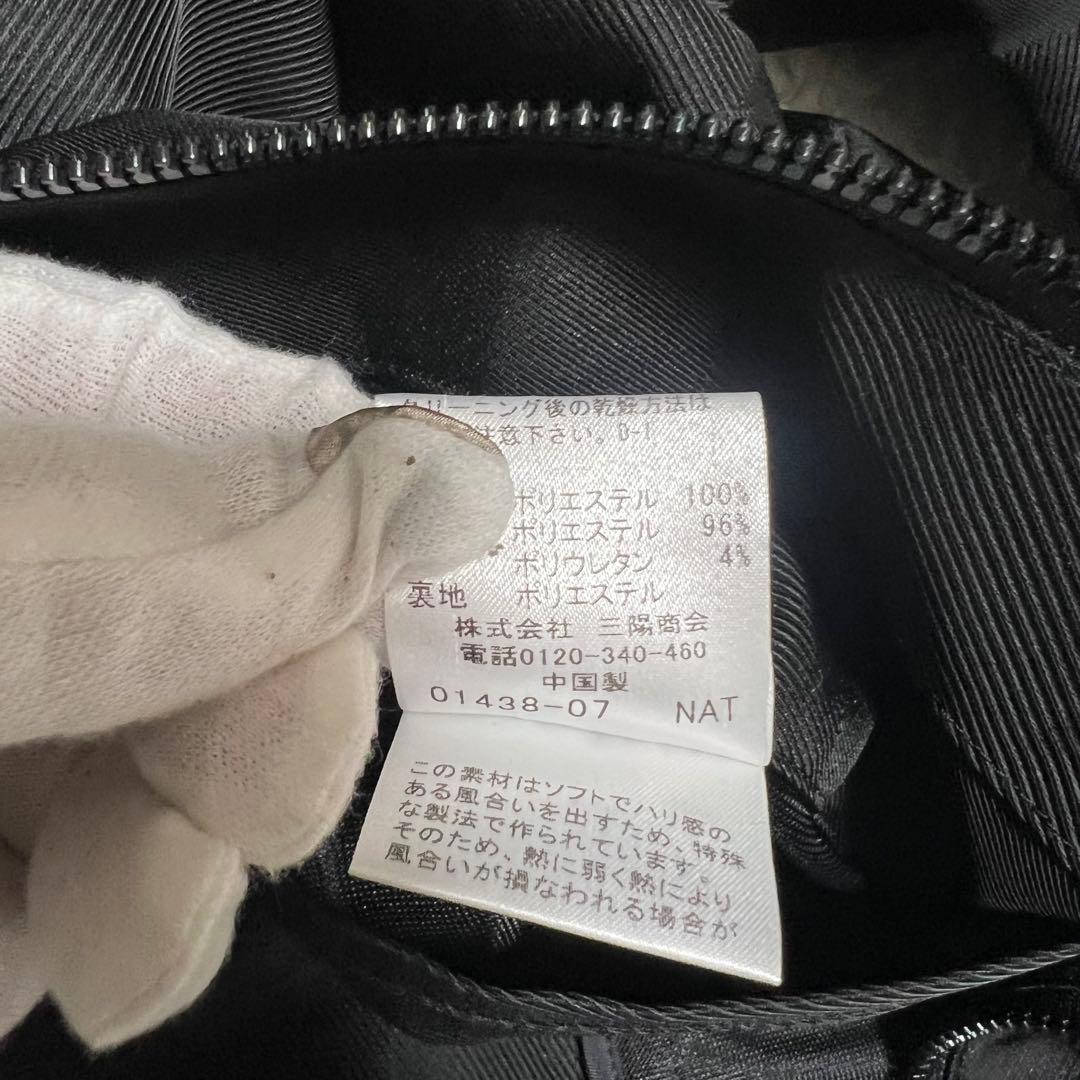 クリーニング後の乾燥方法は
注意下さい。D-1
ポリエステル 100%
ポリエステル 96%
ポリウレタン 4%
裏地 ポリエステル
株式会社 三陽商会
電話0120-340-460
中国製
01438-07 NAT
この素材はソフトでハリ感の
ある風合いを出すため、特殊
な製法で作られています。
そのため、熱に弱く熱により
風合いが損なわれる場合が